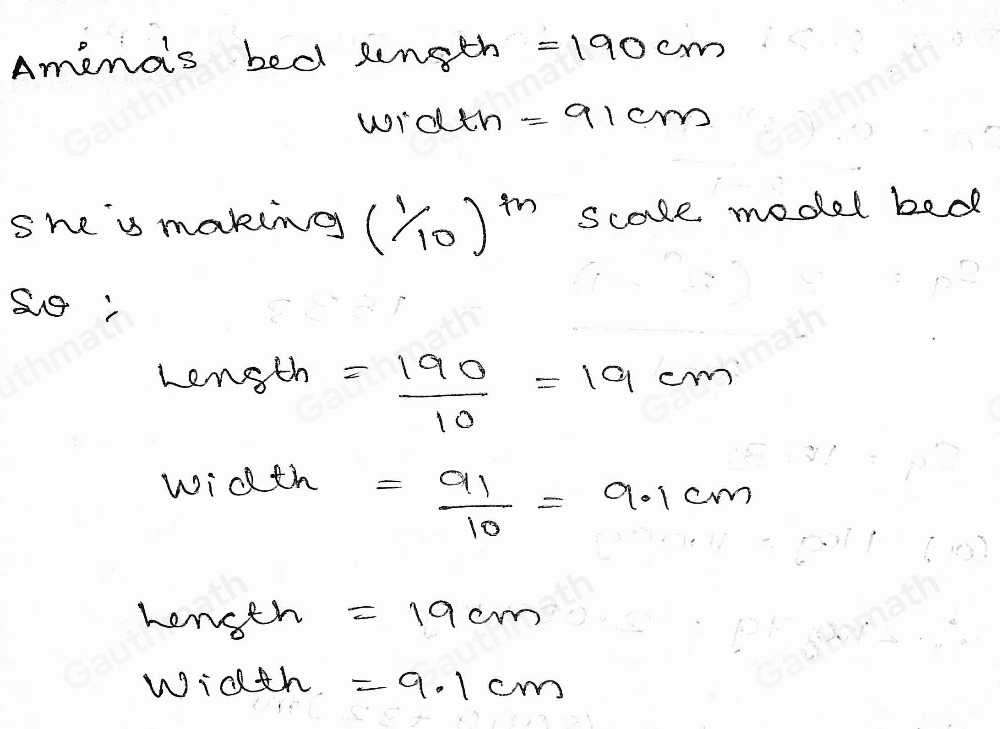 Amina's bed length = 190 cm
width = 91 cm
She is making (1/10)th scale model bed
So :
Length = 190/10 = 19 cm
Width = 91/10 = 9.1 cm
Length = 19 cm
Width = 9.1 cm
Gauthmath